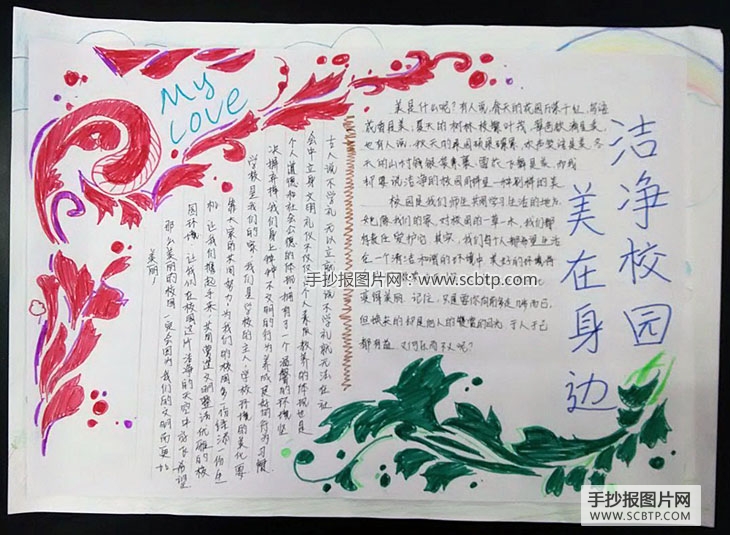 My
Love
洁净校园
美在身边
美是什么呢?有人说,春天的花园万紫千红,鸟语
花香是美,夏天的树林枝繁叶茂,是美,
也有人说,秋天的果园硕果累累,是美,冬
天的山村银装素裹,雪花飞舞是美,而我
却要说洁净的校园同样是一种别样的美.
校园是我们师生共同学习生活的地方,
她像我们的家,对校园的一草一木,我们都
有责任爱护它.其实,我们每个人都希望生活
在一个清洁和谐的环境中,美好的环境将
变得美丽.记住,只是要你向前走一步而已,
但换来的却是他人的赞赏的目光,于人于己
都有益,又何乐而不为呢?
古人说不学礼 无以立 就是说不学礼就无法在社
会中立身 文明礼仪不仅仅是个人素质教养的体现也是
个人道德和社会公德的体现 拥有了一个温馨的环境 坚
决摒弃掉我们身上种种不文明的行为养成良好的行为习惯
学校是我们的家 我们是学校的主人 学校环境的美化要
靠大家的共同努力 为我们的校园多一份绿添一份色
彩 让我们携起手来 共同营造文明整洁优雅的校
园环境 让我们在校园这片洁净的天空中放飞希望
那么美丽的校园一定会因为我们的文明而更加
美丽!
手抄报图片网:www.scbtp.com
手抄报图片网
WWW.SCBTP.COM